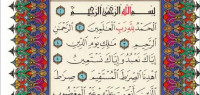 بِسْمِ اللَّهِ الرَّحْمَٰنِ الرَّحِيمِ
الْحَمْدُ لِلَّهِ رَبِّ الْعَالَمِينَ الرَّحْمَٰنِ
الرَّحِيمِ مَالِكِ يَوْمِ الدِّينِ
إِيَّاكَ نَعْبُدُ وَإِيَّاكَ نَسْتَعِينُ
اهْدِنَا الصِّرَاطَ الْمُسْتَقِيمَ صِرَاطَ